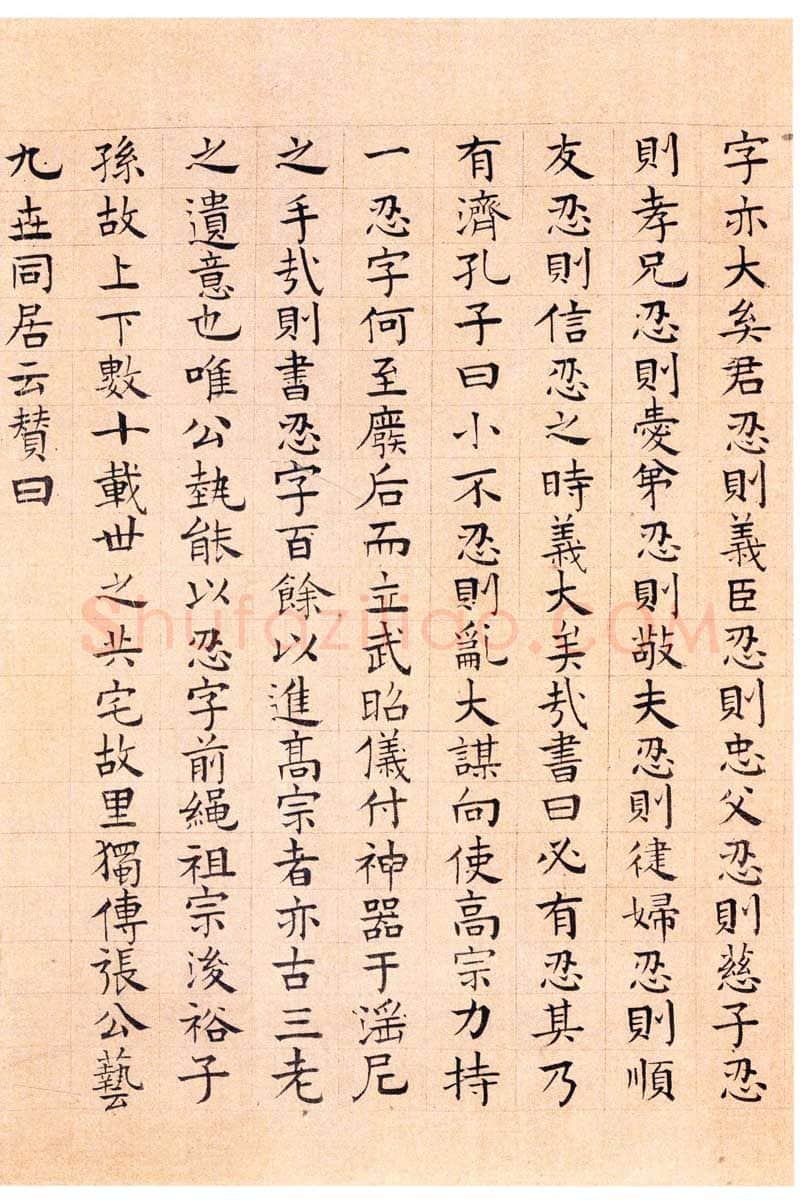 字亦大矣君忍則義臣忍則忠父忍則慈子忍
則孝兄忍則愛弟忍則敬夫忍則徤婦忍則順
友忍則信忍之時義大矣哉書曰必有忍其乃
有濟孔子曰小不忍則亂大謀向使高宗力持
一忍字何至廢后而立武昭儀付神器于淫尼
之手哉則書忍字百餘以進髙宗者亦古三老
之遺意也唯公執能以忍字前繩祖宗浚裕子
孫故上下數十載世之共宅故里獨傳張公藝
九世同居云賛曰
Shufaziliao.COM